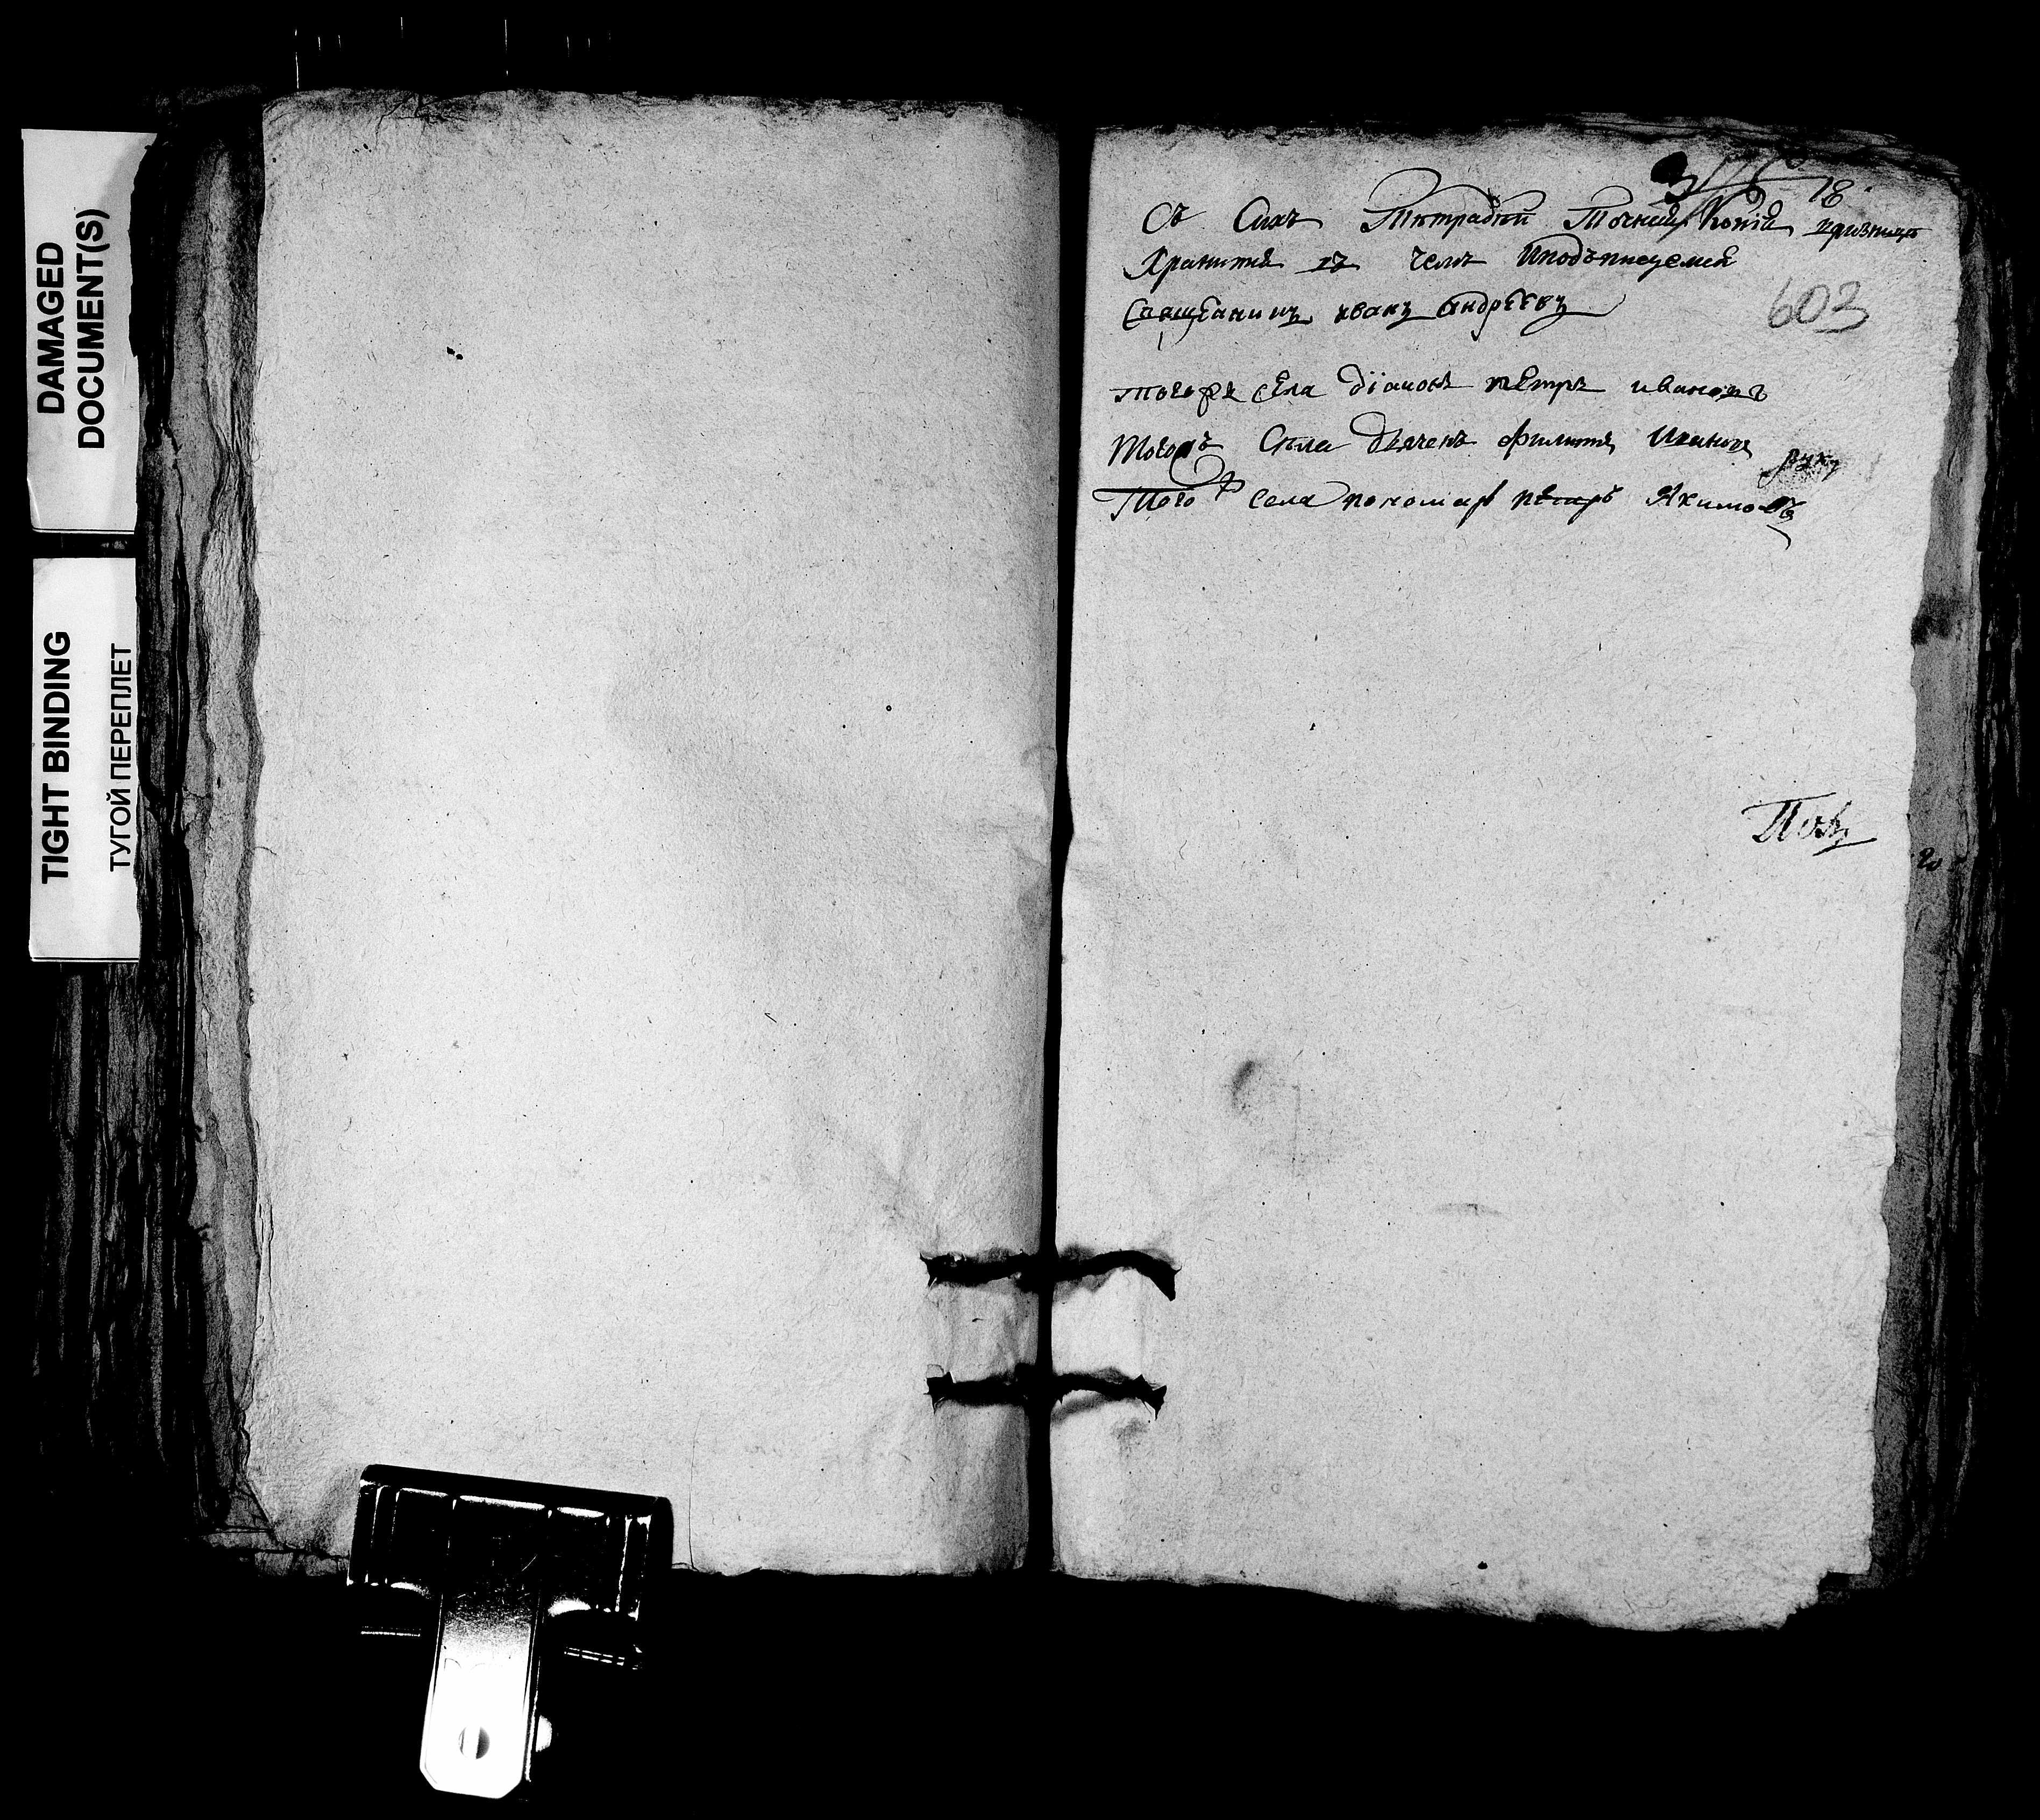 DAMAGED
DOCUMENT(S)
TIGHT BINDING
ТУГОЙ ПЕРЕПЛЕТ
18
Съ Сихъ Тетрадей Точния Копия
Хранится въ чемъ Иподъписуемся
603
Священникъ иванъ андреевъ
тогожъ села діаконъ петръ ивановъ
Тогожъ Села дьячекъ филиппъ Ивановъ
руку
Того ж села пономар петръ Якимовъ
20